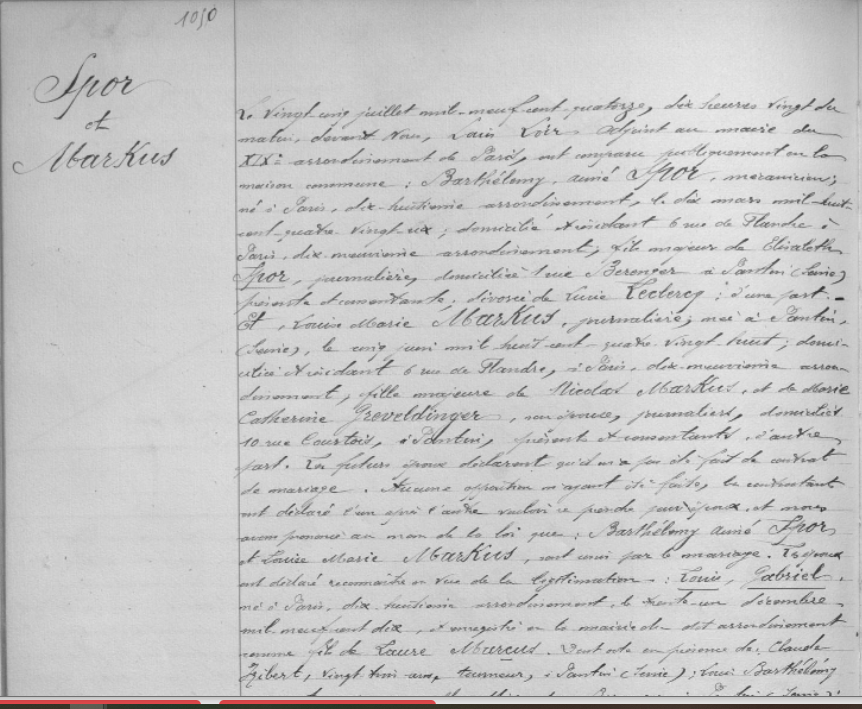 1050
Spor
et
Markus
Le vingt cinq juillet mil-neuf-cent-quatorze, dix heures vingt du
matin, devant Nous, Louis Loir, adjoint au maire du
XIXe arrondissement de Paris, ont comparu publiquement en la
maison commune : Barthélemy, aimé Spor, mécanicien,
né à Paris, dix-huitième arrondissement, le dix mars mil-huit-
cent-quatre-vingt-six ; domicilié et résidant 6 rue de Flandre à
Paris, dix-neuvième arrondissement, fils majeur de Elisabeth
Spor, journalière, domiciliée 1 rue Béranger à Pantin (Seine)
présente et consentante ; divorcé de Lucie Leclercq ; d'une part.-
Et, Louise Marie Markus, journalière, née à Pantin,
(Seine), le cinq juin mil huit cent quatre-vingt huit ; domi-
ciliée et résidant 6 rue de Flandre, à Paris, dix-neuvième arron-
dissement, fille majeure de Nicolas Markus, et de Marie
Catherine Greveldinger, son épouse, journaliers, domiciliés
10 rue Courtois, à Pantin, présents et consentants, d'autre
part. Les futurs époux déclarent qu'il n'a pas été fait de contrat
de mariage. Aucune opposition n'ayant été faite, les contractants
ont déclaré l'un après l'autre vouloir se prendre pour époux, et nous
avons prononcé au nom de la loi que : Barthélemy aimé Spor
et Louise Marie Markus, sont unis par le mariage. Les époux
ont déclaré reconnaître en vue de la légitimation : Louis, Gabriel,
né à Paris, dix-huitième arrondissement, le trente-un décembre
mil-neuf-cent dix, et enregistré en la mairie du dit arrondissement
comme fils de Laure Marcus. Dont acte en présence de : Claude
Gibert, vingt trois ans, tourneur, à Pantin (Seine) ; Louis Barthélémy